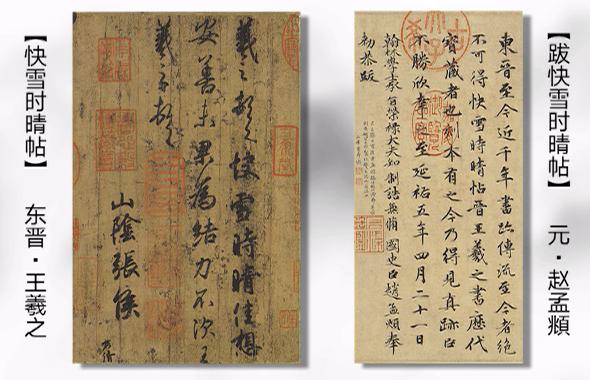 【快雪时晴帖】 东晋·王羲之
羲之頓首快雪時晴佳想
安善未果為結力不次王
羲之頓首
山陰張侯
君倩
【跋快雪时晴帖】 元·赵孟頫
東晉至今近千年書跡傳流至今者絕
不可得快雪時晴帖晉王羲之書歷代
寶藏者也刻本有之今乃得見真跡臣
不勝欣幸之至延祐五年四月二十一日
翰林學士承旨榮祿大夫知制誥兼脩國史臣趙孟頫奉
勑恭跋